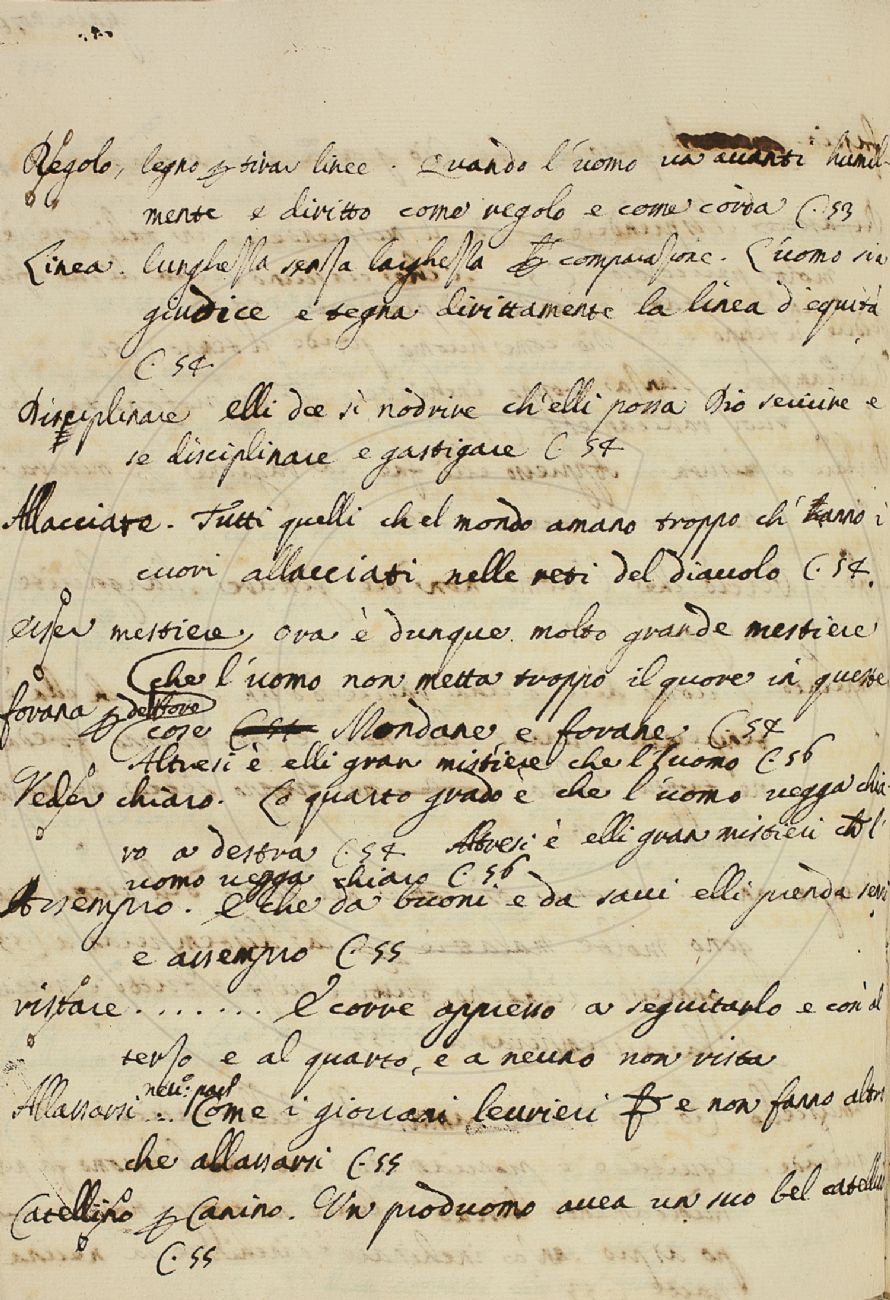 Regolo, legno p tirar linee. Quando l'uomo va avanti humil-
mente e diritto come regolo e come corda C. 53
Linea. lunghessa sensa larghessa p comparasione. L'uomo sia
giudice e segna dirittamente la linea d'equità
C. 54
Disciplinare elli dee sì nodrire ch'elli possa Dio servire e
se disciplinare e gastigare C. 54
Allacciare. Tutti quelli ch'el mondo amano troppo ch'hanno i
cuori allacciati nelle reti del diavolo C. 54.
Esser mestiere, ora è dunque molto grande mestiere
che l'uomo non metta troppo il quore in queste
forana p
cose C. 54 Mondane, e forane C. 54
Altresi è elli gran mistiere che l'uomo C. 56
Veder chiaro. Lo quarto grado è che l'uomo vegga chia-
ro a destra C. 54 Altresi è elli gran mistieri ch l'
uomo vegga chiaro C. 56
Assempro. E che da buoni e da savi elli prenda
e assempro C. 55
ristare....... E corre appresso a seguitarlo e così al
terso e al quarto, e a neuno non rista
neu: pass
Allassarsi... Come i giovani levrieri e non fanno altro
che allassarsi C. 55
Catellino p Canino. Un produomo avea un suo bel catellino
C. 55